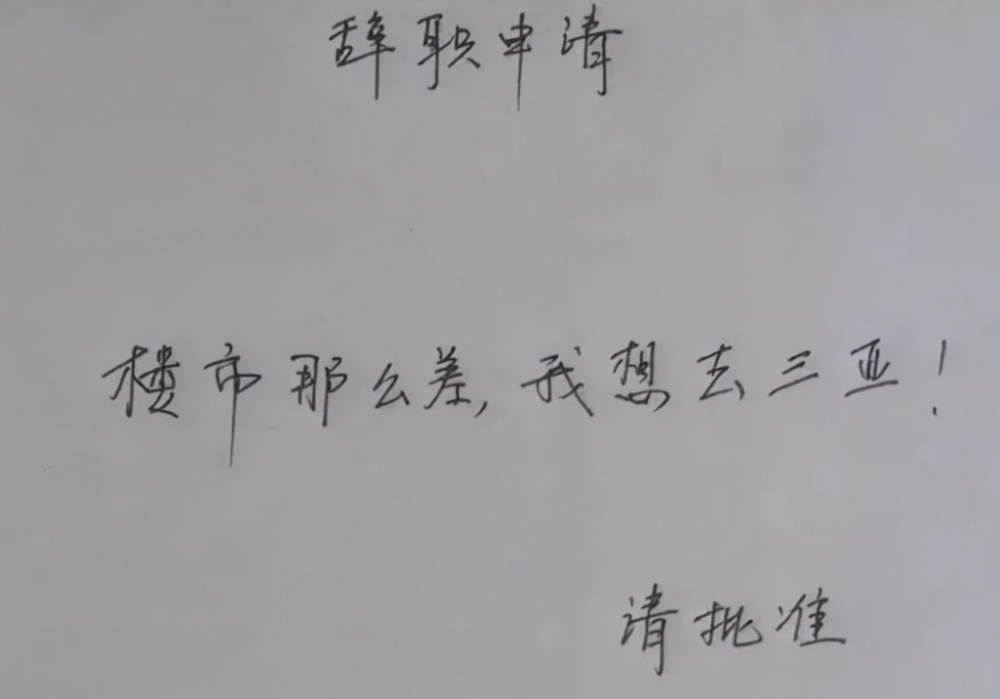 辞职申请
楼市那么差,我想去三亚!
请批准